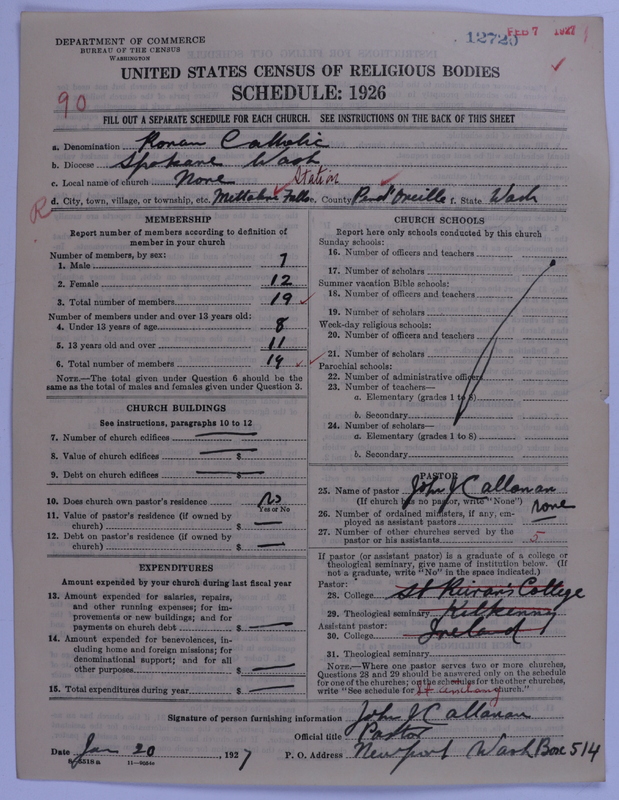 DEPARTMENT OF COMMERCE
BUREAU OF THE CENSUS
WASHINGTON
12723
FEB 7 1927
UNITED STATES CENSUS OF RELIGIOUS BODIES
SCHEDULE: 1926
90
FILL OUT A SEPARATE SCHEDULE FOR EACH CHURCH. SEE INSTRUCTIONS ON THE BACK OF THIS SHEET
a. Denomination Roman Catholic
b. Diocese Spokane Wash
c. Local name of church None Station
R d. City, town, village, or township, etc. Falls e. County Pend Oreille f. State Wash
MEMBERSHIP
Report number of members according to definition of
member in your church
Number of members, by sex:
1. Male 7
2. Female 12
3. Total number of members 19
Number of members under and over 13 years old:
4. Under 13 years of age 8
5. 13 years old and over 11
6. Total number of members 19
NOTE.—The total given under Question 6 should be the
same as the total of males and females given under Question 3.
CHURCH BUILDINGS
See instructions, paragraphs 10 to 12
7. Number of church edifices
8. Value of church edifices $
9. Debt on church edifices $
10. Does church own pastor's residence No
Yes or No
11. Value of pastor's residence (if owned by
church) $
12. Debt on pastor's residence (if owned by
church) $
EXPENDITURES
Amount expended by your church during last fiscal year
13. Amount expended for salaries, repairs,
and other running expenses; for im-
provements or new buildings; and for
payments on church debt $
14. Amount expended for benevolences, in-
cluding home and foreign missions; for
denominational support; and for all
other purposes $
15. Total expenditures during year $
CHURCH SCHOOLS
Report here only schools conducted by this church
Sunday schools:
16. Number of officers and teachers
17. Number of scholars
Summer vacation Bible schools:
18. Number of officers and teachers
19. Number of scholars
Week-day religious schools:
20. Number of officers and teachers
21. Number of scholars
Parochial schools:
22. Number of administrative officers
23. Number of teachers—
a. Elementary (grades 1 to 8)
b. Secondary
24. Number of scholars—
a. Elementary (grades 1 to 8)
b. Secondary
PASTOR
25. Name of pastor John J Callanan
(If church has no pastor, write "None")
26. Number of ordained ministers, if any, em-
ployed as assistant pastors none
27. Number of other churches served by the
pastor or his assistants 5
If pastor (or assistant pastor) is a graduate of a college or
theological seminary, give name of institution below. (If
not a graduate, write "No" in the space indicated.)
Pastor:
28. College St Kieran's College
29. Theological seminary Kilkenny
Assistant pastor:
30. College Ireland
31. Theological seminary
NOTE.—Where one pastor serves two or more churches,
Questions 28 and 29 should be answered only on the schedule
for one of the churches; on the schedules for the other churches,
write "See schedule for St church."
Signature of person furnishing information John J Callanan
Official title Pastor
Date Jan 20, 1927 P. O. Address Newport Wash Box 514
8-5519a 11-9054